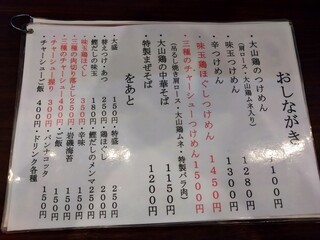 おしながき
・大山鶏のつけめん 1100円
(肩ロース・大山鶏ムネ入り)
・味玉つけめん 1280円
・辛つけめん 1300円
・味玉鶏ほぐしつけめん 1450円
・三種のチャーシューつけめん 1500円
(吊るし焼き肩ロース・大山鶏ムネ・特製バラ肉)
・大山鶏の中華そば 1150円
・特製まぜそば 1200円
をあと
・大盛 150円
・特盛 250円
・替えつけ・あつ 250円
・鶏ほぐし 250円
・鰹だしの味玉 180円
・鰹だしのメンマ 250円
・味玉鶏ほぐし 350円
・辛味 150円
・三種の肉切り落とし 250円
・岩磯海苔 150円
・三種のチャーシュー 400円
・ご飯 150円
・チャーシュー握り 300円
・パンナコッタ 150円
・チャーシューご飯 400円
・ドリンク各種 150円